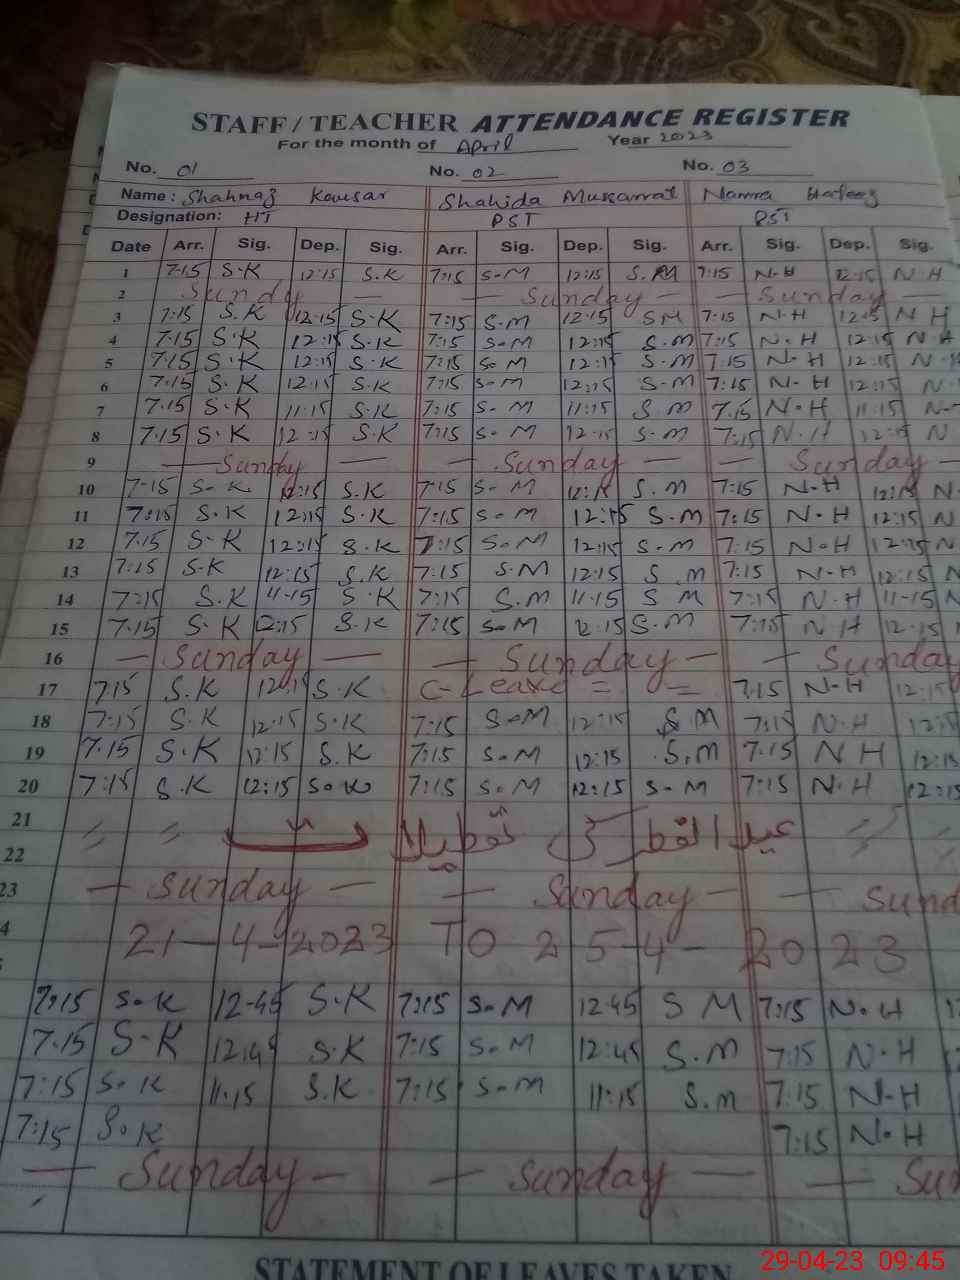 STAFF / TEACHER ATTENDANCE REGISTER
For the month of April Year 2023
No. 01 No. 02 No. 03
Name : Shahnaz Kousar Shahida Mussarrat Namra Hafeez
Designation: HT PST PST
Date Arr. Sig. Dep. Sig. Arr. Sig. Dep. Sig. Arr. Sig. Dep. Sig.
1 7:15 S.K 12:15 S.K 7:15 S.M 12:15 S.M 7:15 N.H 12:15 N H
2 Sundy — — Sunday — — Sunday —
3 7:15 S.K 12:15 S.K 7:15 S.M 12:15 SM 7:15 N.H 12:15 N H
4 7:15 S.K 12:15 S.K 7:15 S.M 12:15 S.M 7:15 N.H 12:15 N.H
5 7:15 S.K 12:15 S.K 7:15 S.M 12:15 S.M 7:15 N.H 12:15 N.
6 7:15 S.K 12:15 S.K 7:15 S.M 12:15 S.M 7:15 N.H 12:15 N.
7 7:15 S.K 11:15 S.K 7:15 S.M 11:15 S.M 7:15 N.H 11:15 N.
8 7:15 S.K 12:15 S.K 7:15 S.M 12:15 S.M 7:15 N.H 12:15 N
9 — Sunday — — Sunday — — Sunday —
10 7:15 S.K 12:15 S.K 7:15 S.M 12:15 S.M 7:15 N.H 12:15 N.
11 7:15 S.K 12:15 S.K 7:15 S.M 12:15 S.M 7:15 N.H 12:15 N
12 7:15 S.K 12:15 S.K 7:15 S.M 12:15 S.M 7:15 N.H 12:15 N
13 7:15 S.K 12:15 S.K 7:15 S.M 12:15 S.M 7:15 N.H 12:15 N
14 7:15 S.K 11:15 S.K 7:15 S.M 11:15 S M 7:15 N.H 11:15 N
15 7:15 S.K 12:15 S.K 7:15 S.M 12:15 S.M 7:15 N H 12:15
16 — Sunday — — Sunday — — Sunday
17 7:15 S.K 12:15 S.K C-Leave = = 7:15 N.H 12:15
18 7:15 S.K 12:15 S.K 7:15 S.M 12:15 S.M 7:15 N.H 12:15
19 7:15 S.K 12:15 S.K 7:15 S.M 12:15 S.M 7:15 N H 12:15
20 7:15 S.K 12:15 S.K 7:15 S.M 12:15 S.M 7:15 N.H 12:15
21 عید الفطر کی تعطیلات
22
23 — Sunday — — Sunday — — Sund
4 21-4-2023 TO 25-4-2023
7:15 S.K 12-45 S.K 7:15 S.M 12:45 S M 7:15 N.H
7:15 S.K 12:45 S.K 7:15 S.M 12:45 S.M 7:15 N.H
7:15 S.K 11:15 S.K 7:15 S.M 11:15 S.M 7:15 N.H
7:15 S.K 7:15 N.H
— Sunday — — Sunday — — Sun
STATEMENT OF LEAVES TAKEN
29-04-23 09:45